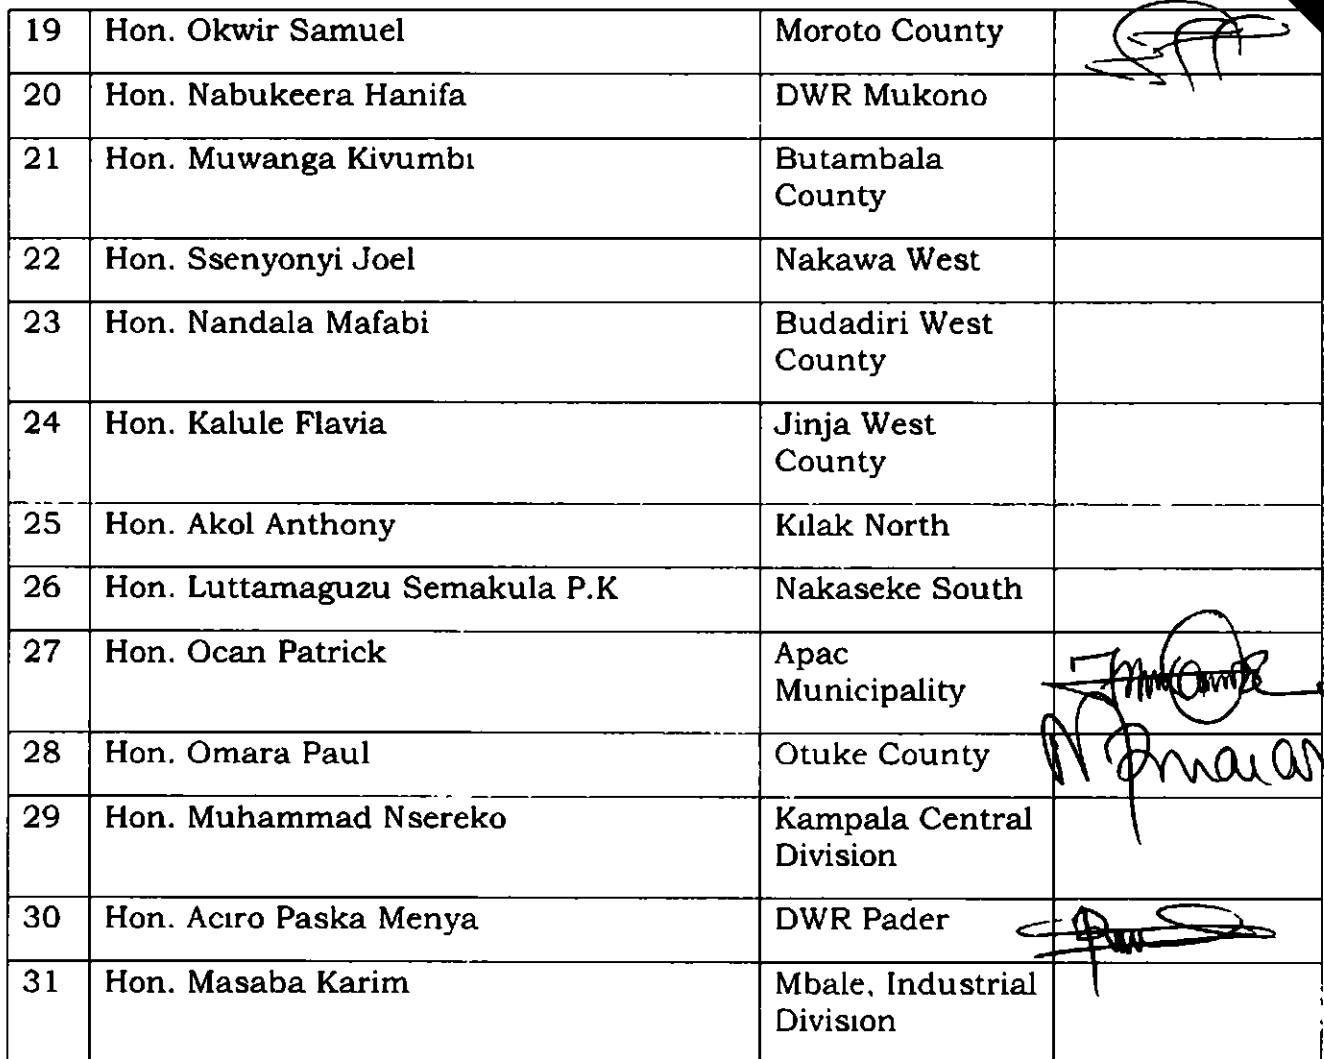 19 Hon. Okwir Samuel Moroto County
20 Hon. Nabukeera Hanifa DWR Mukono
21 Hon. Muwanga Kivumbı Butambala
County
22 Hon. Ssenyonyi Joel Nakawa West
23 Hon. Nandala Mafabi Budadiri West
County
24 Hon. Kalule Flavia Jinja West
County
25 Hon. Akol Anthony Kılak North
26 Hon. Luttamaguzu Semakula P.K Nakaseke South
27 Hon. Ocan Patrick Apac
Municipality
28 Hon. Omara Paul Otuke County
29 Hon. Muhammad Nsereko Kampala Central
Division
30 Hon. Acıro Paska Menya DWR Pader
31 Hon. Masaba Karim Mbale, Industrial
Divisıon